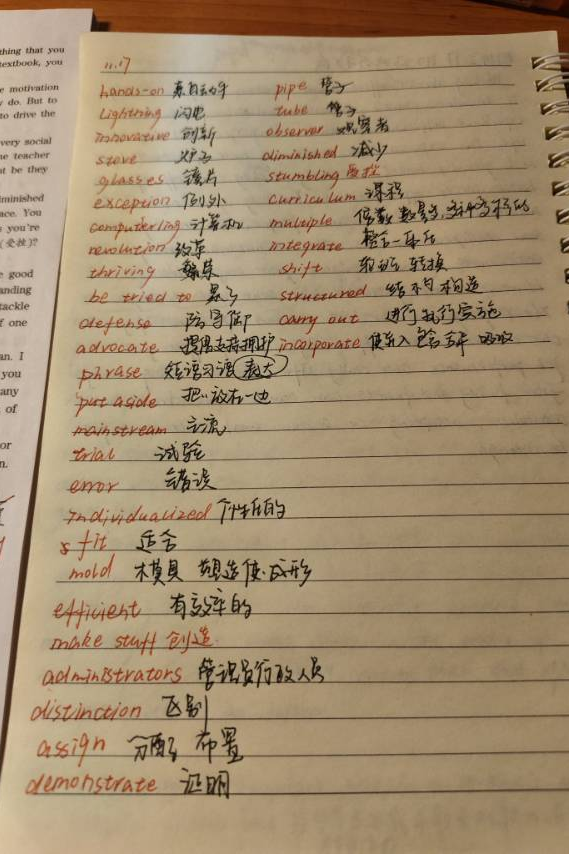 thing that you
textbook, you
e motivation
y do. But to
to drive the
very social
he teacher
ut be they
iminished
ace. You
s you're
(受挫)?
e good
anding
tackle
f one
an. I
you
any
of
or
n.
11.17
hands-on 亲自动手 pipe 管子
Lightning 闪电 tube 管子
innovative 创新 observer 观察者
stove 炉子 diminished 减少
glasses 镜片 stumbling 受挫
exception 例外 curriculum 课程
computerling 计算机 multiple 倍数 数量多,多种多样的
revolution 改革 integrate 整合一体化
thriving 繁荣 shift 转换
be tried to structured 结构 构造
defense 防守 carry out 进行执行实施
advocate 提倡支持拥护 incorporate 使并入 包含 吸收
phrase 短语习语表达
put aside 把..放在一边
mainstream 主流
trial 试验
error 错误
individualized 个性的
s fit 适合
mold 模具 塑造使.成形
efficient 有效率的
make stuff 创造
administrators 管理员行政人员
distinction 区别
assign 分配 布置
demonstrate 证明